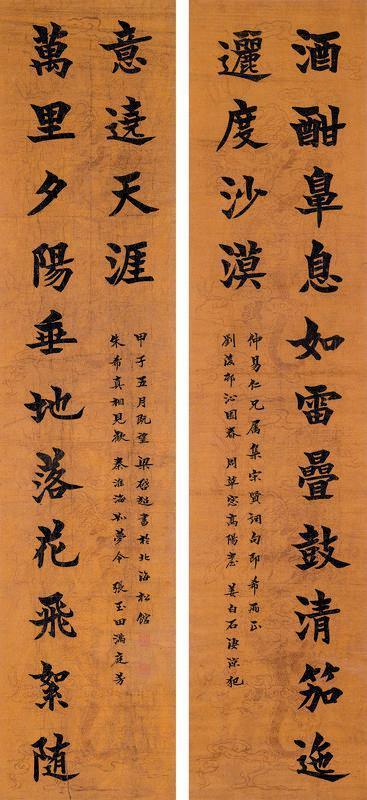 酒酣鼻息如雷疊鼓清笳迤
邐度沙漠
仲易仁兄属集宋賢詞句即希兩正
劉後邨沁園春 周草窓高陽臺 姜白石淒涼犯
萬里夕陽垂地落花飛絮随
意遶天涯
朱希真相見歡 秦淮海如夢令 張玉田滿庭芳
甲子五月既望 梁啟超書於北海松館